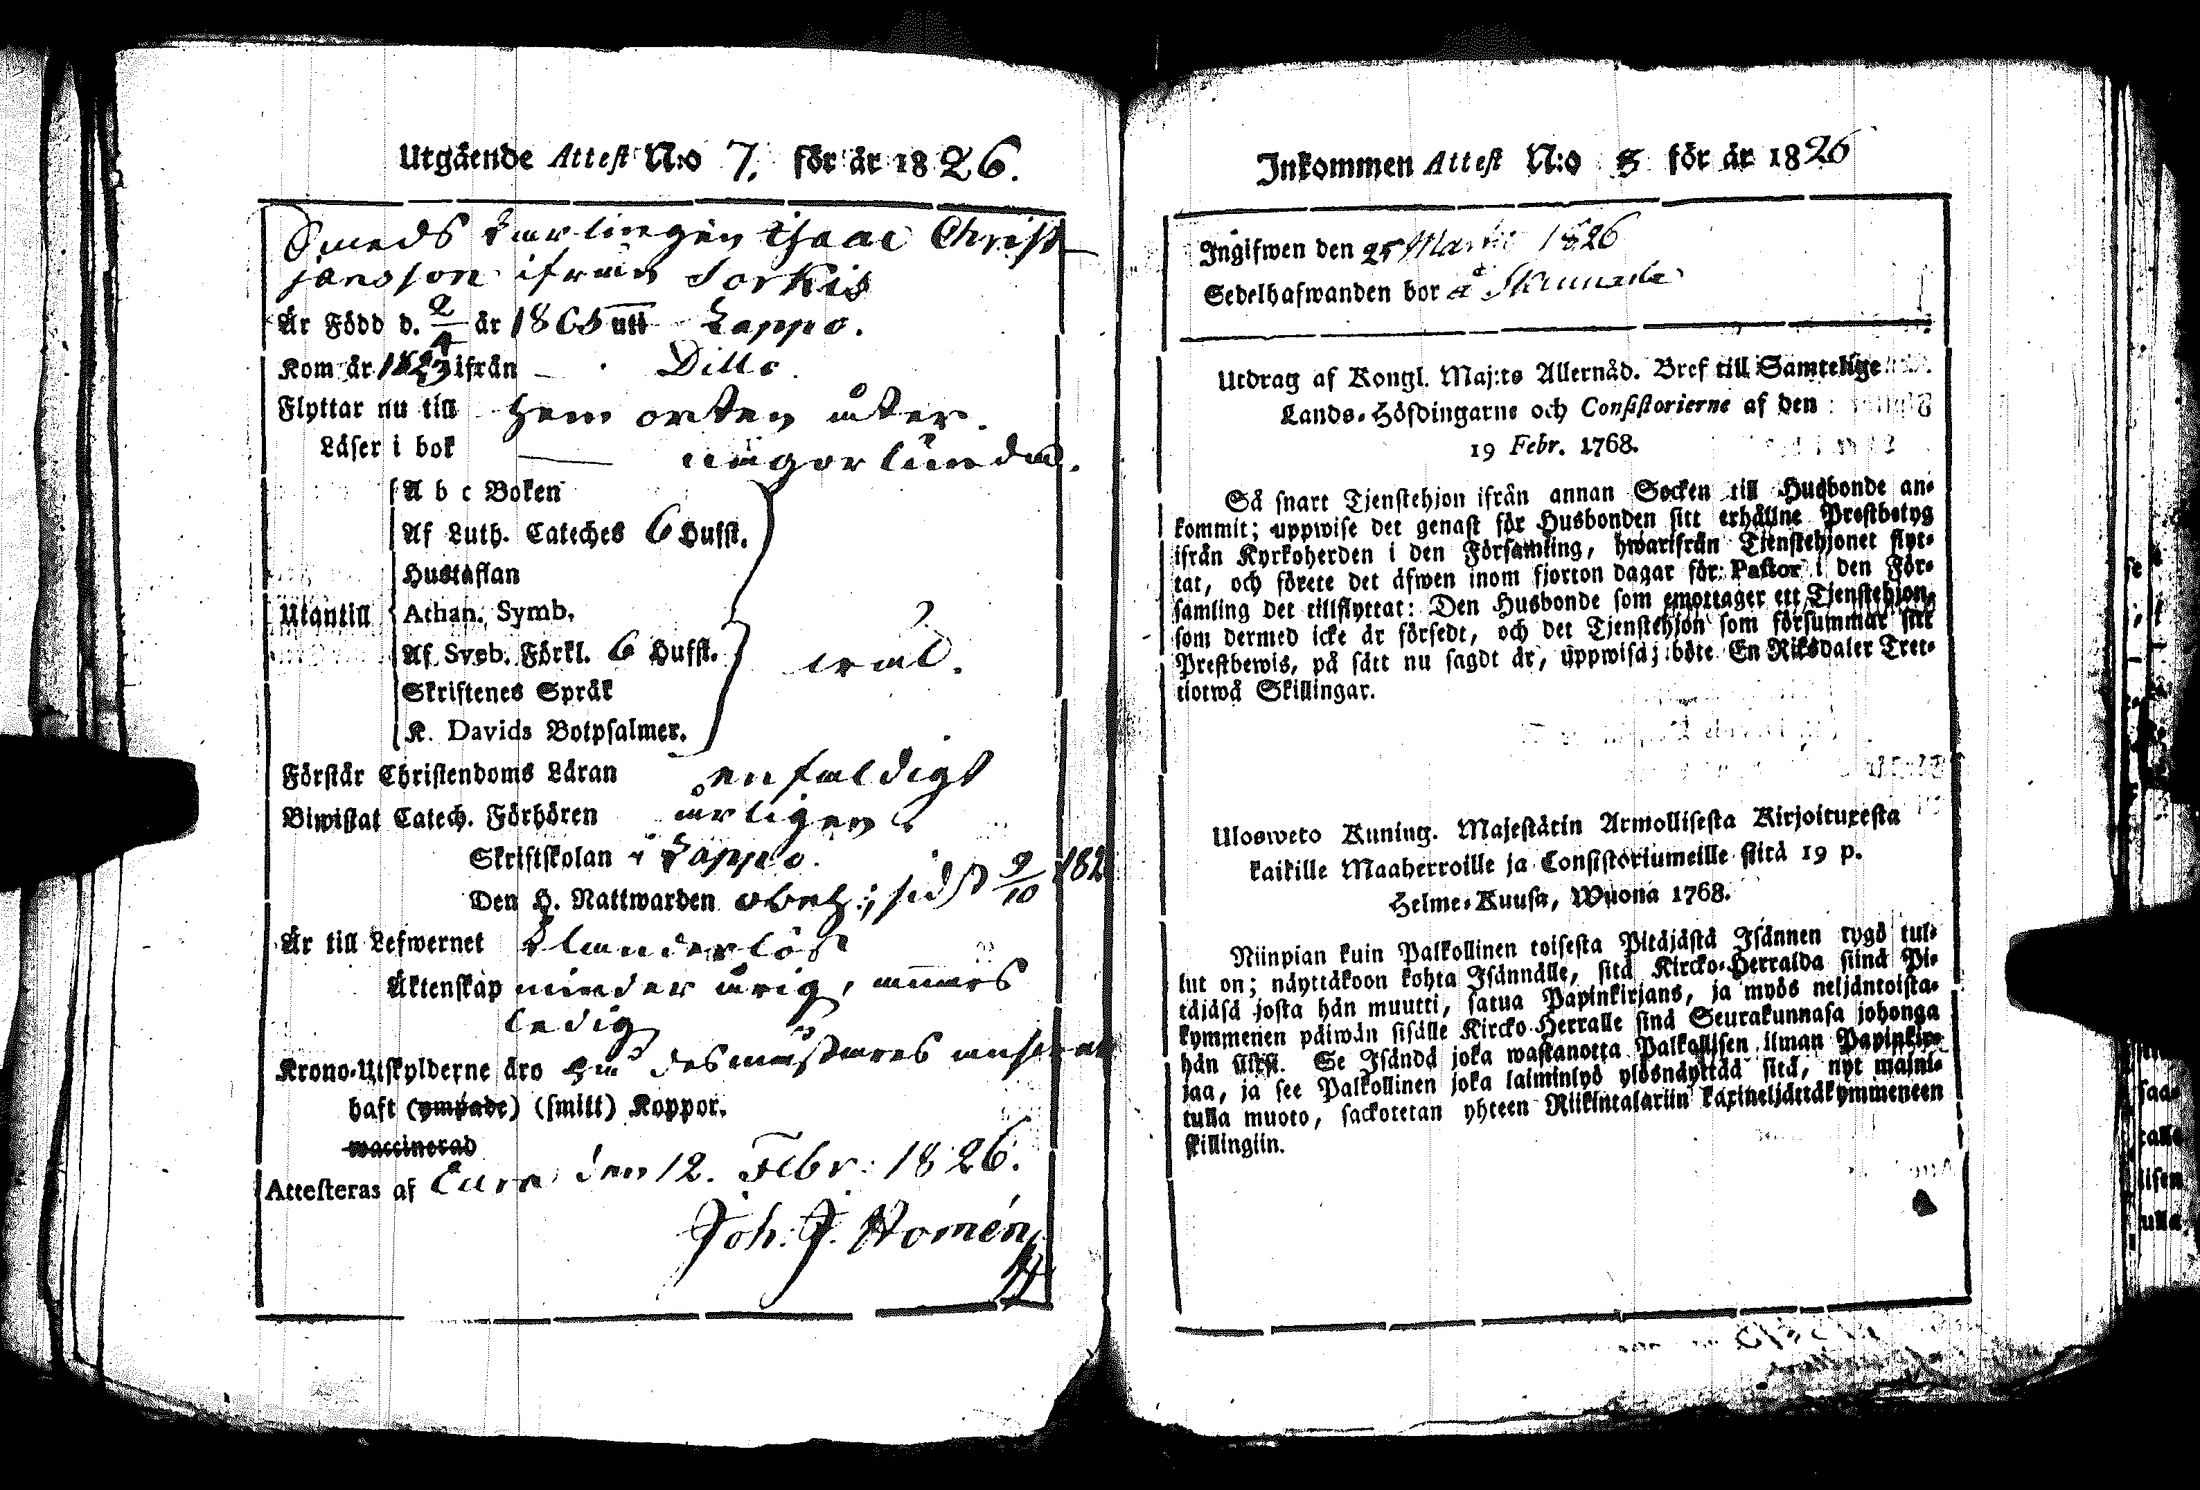 Utgående Attest N:o 7. för år 1826.
Smeds Lärlingen Isaac Christ
jansson ifrån Sorkis
Är Född d. 2/4 år 1805 uti Lappo.
Kom år 1823 ifrån — Ditto.
Flyttar nu till Hem orten åter.
Läser i bok — någorlunda.
A b c Boken
Af Luth. Cateches 6 Hufst.
Hustaflan
Utantill Athan. Symb.
Af Sveb. Förkl. 6 Hufst. wäl.
Skriftenes Språk
K. Davids Botpsalmer.
Förstår Christendoms Läran enfaldigt
Biwistat Catech. Förhören årligen
Skriftskolan i Lappo.
Den H. Nattwarden obeh:; sidst 9/10 182
Är till Lefwernet Klanderlös
Äktenskap minder årig, annars
ledig
Krono-Utskylderne äro hos des mästares ansvar
haft (ympade) (smitt) Koppor.
waccinerad
Attesteras af Eura den 12. Febr: 1826.
Joh. J. Homén
Inkommen Attest N:o 8 för år 1826
Ingifwen den 25 Martii 1826
Sedelhafwanden bor å
Utdrag af Kongl. Maj:ts Allernåd. Bref till Samtelige
Lands-Höfdingarne och Consistorierne af den
19 Febr. 1768.
Så snart Tjenstehjon ifrån annan Socken till Husbonde an-
kommit; uppwise det genast för Husbonden sitt erhållne Prestbetyg
ifrån Kyrkoherden i den Församling, hwarifrån Tjenstehjonet flyt-
tat, och förete det äfwen inom fjorton dagar för Pastor i den För-
samling det tillflyttat: Den Husbonde som emottager ett Tjenstehjon,
som dermed icke är försedt, och det Tjenstehjon som försummar sitt
Prestbewis, på sätt nu sagdt är, uppwisa; böte En Riksdaler Tret-
tiotwå Skillingar.
Ulosweto Kuning. Majestätin Armollisesta Kirjoituxesta
kaikille Maaherroille ja Consistoriumeille siitä 19 p.
Helme-Kuusa, Wuona 1768.
Niinpian kuin Palkollinen toisesta Pitäjästä Isännen tygö tul-
lut on; näyttäkoon kohta Isännälle, sitä Kircko-Herralda siinä Pi-
täjäsä josta hän muutti, saatua Papinkirjans, ja myös neljäntoista-
kymmenen päiwän sisälle Kircko-Herralle siinä Seurakunnasa johonga
hän siirsi. Se Isändä joka wastanotta Palkollisen ilman Papinkir-
jaa, ja see Palkollinen joka laiminlyö ylösnäyttää sitä, nyt maini-
tulla muoto, sackotetan yhteen Riikintalariin kaxineljättäkymmeneen
skillingiin.